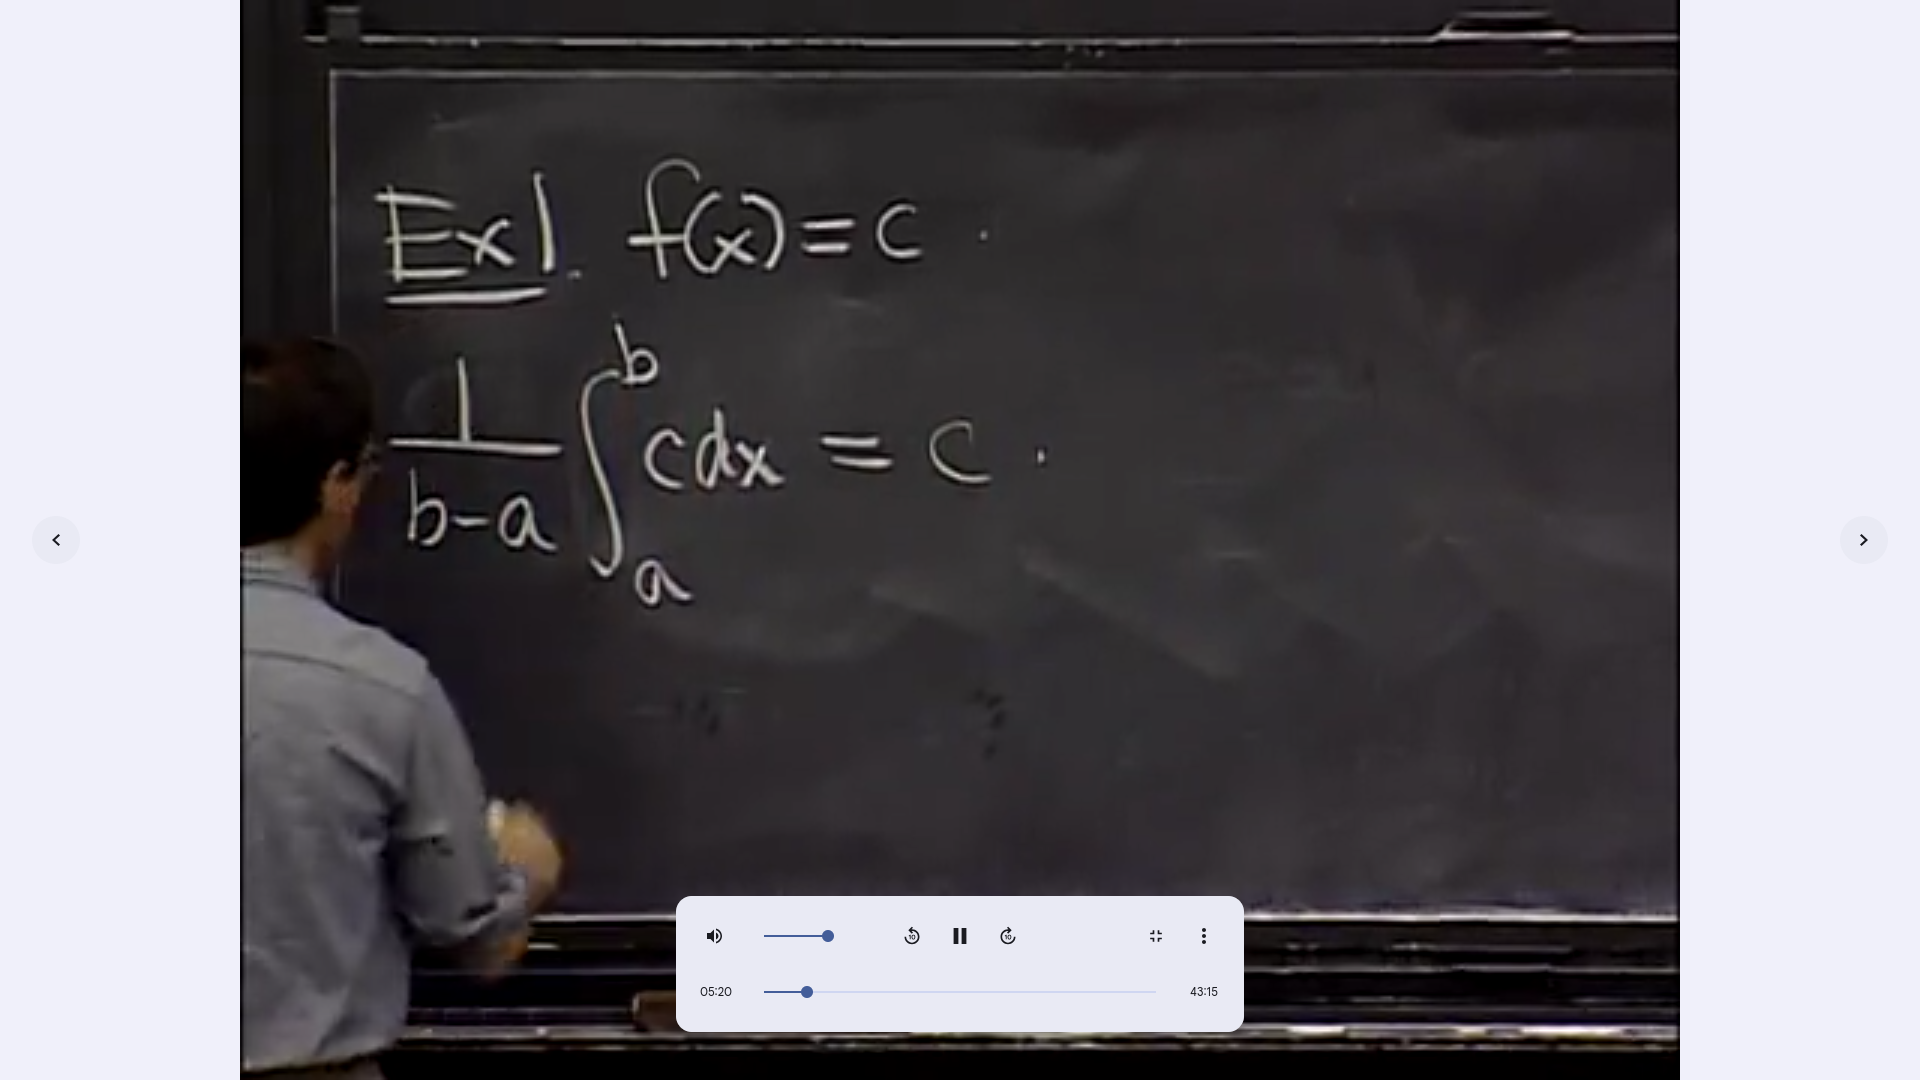 Ex1. f(x) = c
1/(b-a) ∫_a^b c dx = c.
05:20
43:15